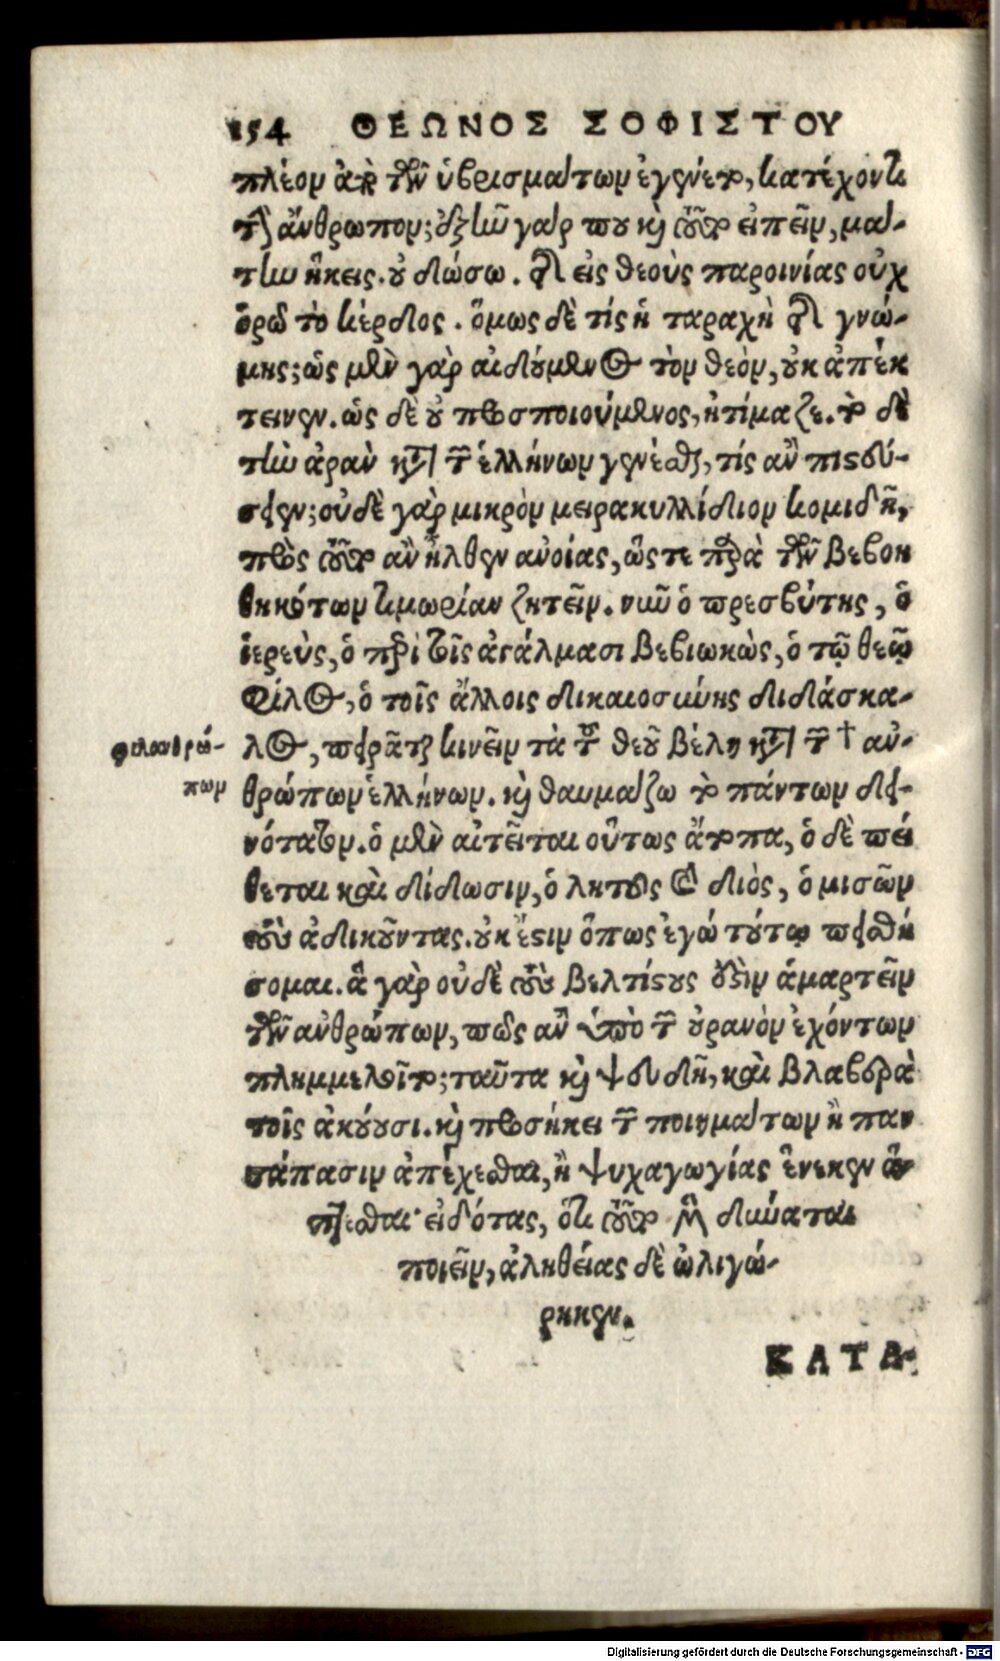 154 ΘΕΩΝΟΣ ΣΟΦΙΣΤΟΥ
πλέον ἀπὸ τῶν ὑβρισμάτων ἐγένετο, κατέχοντι
τὸν ἄνθρωπον; ἐξῆν γάρ που καὶ τοῦτο εἰπεῖν, μά-
την ἥκεις. οὐ δώσω. τῆς εἰς θεοὺς παροινίας οὐχ
ὁρῶ τὸ κέρδος. ὅμως δὲ τίς ἡ ταραχὴ τῆς γνώ-
μης; ὡς μὲν γὰρ αἰδούμενος τὸν θεὸν, οὐκ ἀπέκ
τεινεν. ὡς δὲ οὐ προσποιούμενος, ἠτίμαζε. τὸ δὲ
τὴν ἀρὰν κατὰ τῶν ἑλλήνων γενέσθαι, τίς ἂν πιστεύ-
σειεν; οὐδὲ γὰρ μικρὸν μειρακυλλίδιον κομιδῆ,
πρὸς τοῦτο ἂν ἦλθεν ἀνοίας, ὥστε παρὰ τῶν βεβοη
θηκότων τιμωρίαν ζητεῖν. νῦν ὁ πρεσβύτης, ὁ
ἱερεὺς, ὁ περὶ τοῖς ἀγάλμασι βεβιωκὼς, ὁ τῷ θεῷ
φίλος, ὁ τοῖς ἄλλοις δικαιοσύνης διδάσκα-
λος, πειρᾶται κινεῖν τὰ τοῦ θεοῦ βέλη κατὰ τῶν † ἀν-
φιλανθρώ-
πων
θρώπων ἑλλήνων. καὶ θαυμάζω τὸ πάντων δει-
νότατον. ὁ μὲν αἰτεῖται οὕτως ἄτοπα, ὁ δὲ πεί
θεται καὶ δίδωσιν, ὁ λητοῦς καὶ διὸς, ὁ μισῶν
τοὺς ἀδικοῦντας. οὐκ ἔστιν ὅπως ἐγὼ τούτῳ πεισθή
σομαι. ἃ γὰρ οὐδὲ τοὺς βελτίστους ἔστιν ἁμαρτεῖν
τῶν ἀνθρώπων, πῶς ἂν ὑπὸ τῶν οὐρανὸν ἐχόντων
πλημμελοῖτο; ταῦτα καὶ ψευδῆ, καὶ βλαβερὰ
τοῖς ἀκούουσι. καὶ προσήκει τῶν ποιημάτων ἢ παν
τάπασιν ἀπέχεσθαι, ἢ ψυχαγωγίας ἕνεκεν ἅ
πτεσθαι· εἰδότας, ὅτι τοῦτο μὲν δύναται
ποιεῖν, ἀληθείας δὲ ὠλιγώ-
ρηκεν.
ΚΑΤΑ-
Digitalisierung gefördert durch die Deutsche Forschungsgemeinschaft - DFG